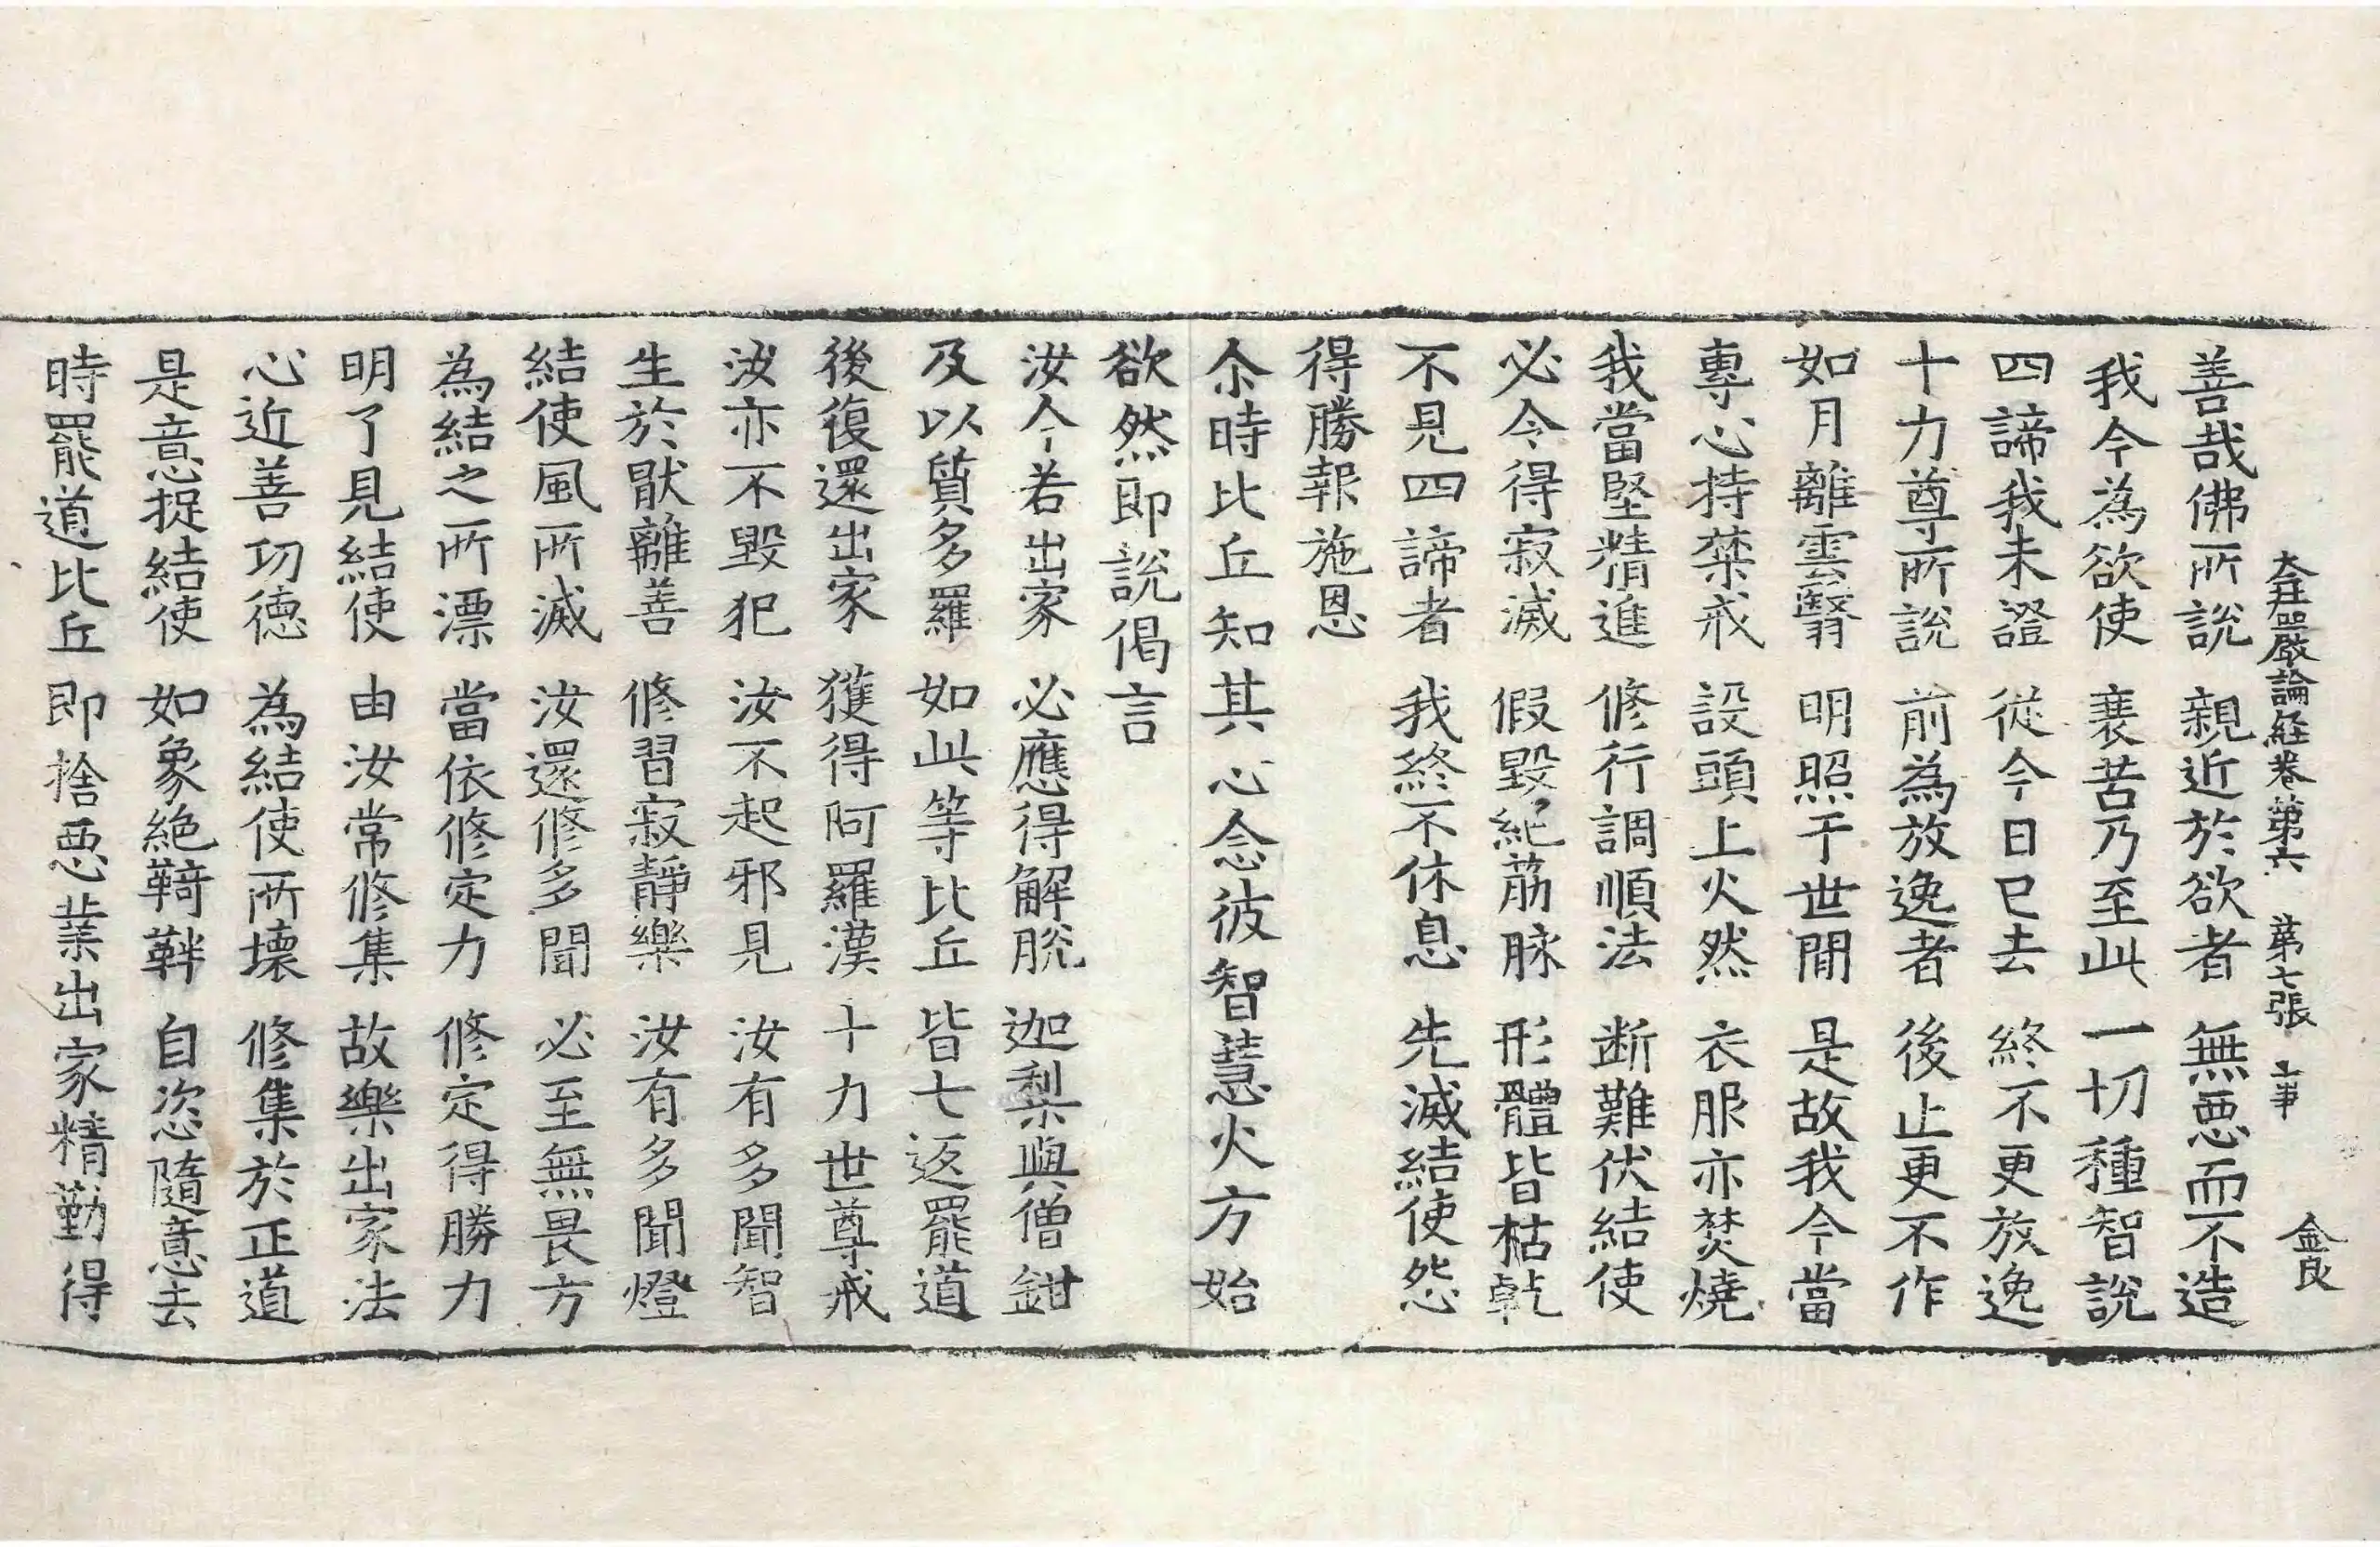 大莊嚴論經卷第六 第七張 金良
善哉佛所説 親近於欲者 無惡而不造
我今為欲使 衰苦乃至此 一切種智説
四諦我未證 從今日已去 終不更放逸
十力尊所説 前為放逸者 後止更不作
如月離雲翳 明照于世間 是故我今當
專心持禁戒 設頭上火然 衣服亦焚燒
我當堅精進 修行調順法 断難伏結使
必令得寂滅 假毀絕筋脉 形體皆枯乾
不見四諦者 我終不休息 先滅結使怨
得勝報施恩
尒時比丘知其心念彼智慧火方始
欲然即説偈言
汝今若出家 必應得解脫 迦梨與僧鉗
及以質多羅 如此等比丘 皆七返罷道
後復還出家 獲得阿羅漢 十力世尊戒
汝亦不毀犯 汝不起邪見 汝有多聞智
生於猒離善 修習寂靜樂 汝有多聞燈
結使風所滅 汝還修多聞 必至無畏方
為結之所漂 當依修定力 修定得勝力
明了見結使 由汝常修集 故樂出家法
心近善功德 為結使所壞 修集於正道
是意捉結使 如象絕鞿靽 自恣隨意去
時罷道比丘即捨惡業出家精勤得